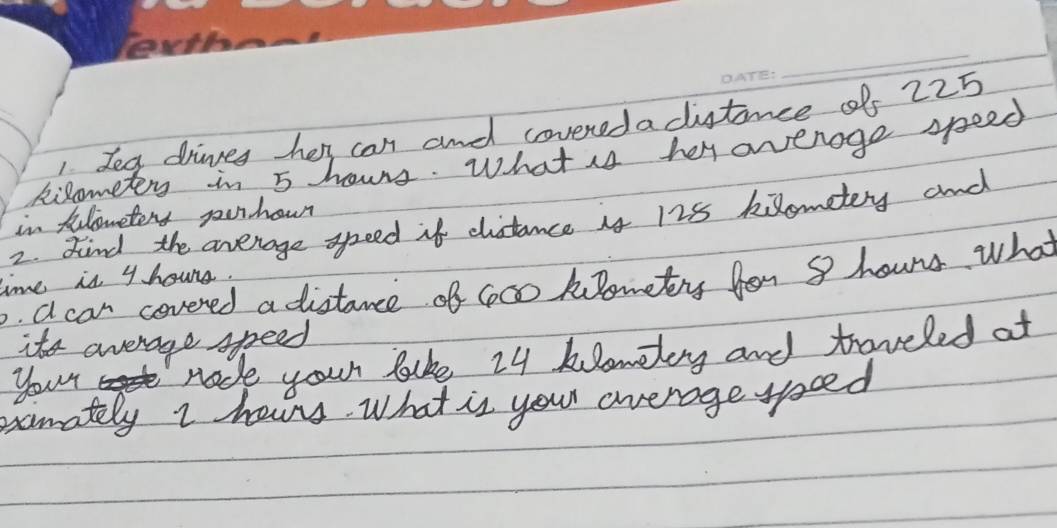 Textboo
DATE:
1. Leg drives her car and covered a distance of 225
kilometers in 5 hours. What is her average speed
in kilometers per hour
2. Find the average speed if distance is 128 kilometers and
time is 4 hours.
. A car covered a distance of 600 kilometers for 8 hours. What
its average speed
Your rode your bike 24 kilometers and traveled at
oximately 2 hours. What is your average speed